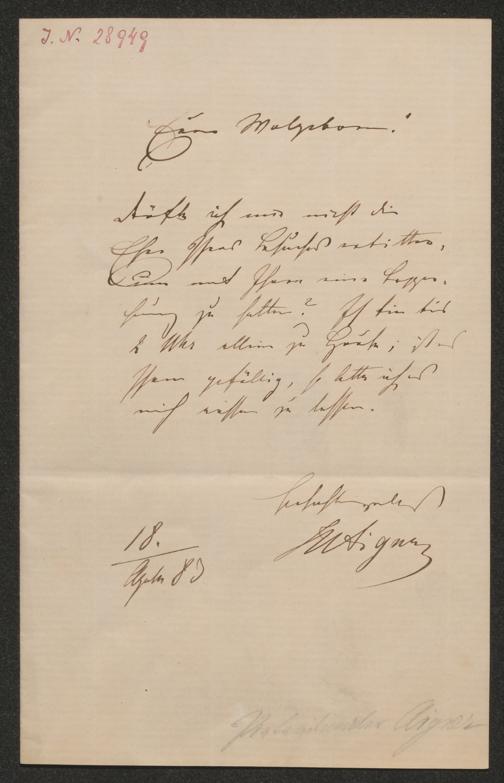 I. N. 28949
Euer Wolgeboren!
Dürfte ich mir nicht die
Ehre Ihres Besuches erbitten,
um mit Ihnen eine Bespre-
chung zu halten? Ich bin bis
2 Uhr allein zu Hause; ist es
Ihnen gefällig, so bitte ich es
mich wissen zu lassen.
Hochachtungsvollst
Aigner
18.
83
Aigner